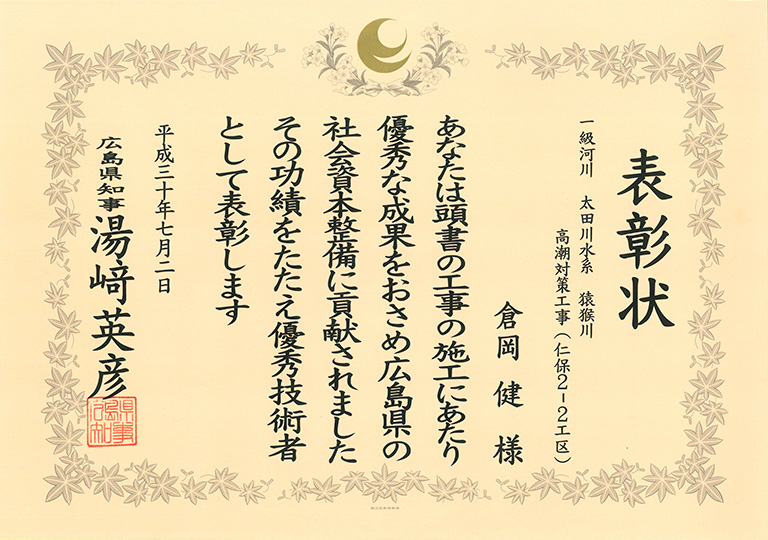 表彰状
一級河川　太田川水系　猿猴川
高潮対策工事（仁保２−２工区）
倉岡　健　様
あなたは頭書の工事の施工にあたり
優秀な成果をおさめ広島県の
社会資本整備に貢献されました
その功績をたたえ優秀技術者
として表彰します
平成三十年七月二日
広島県知事　湯﨑英彦